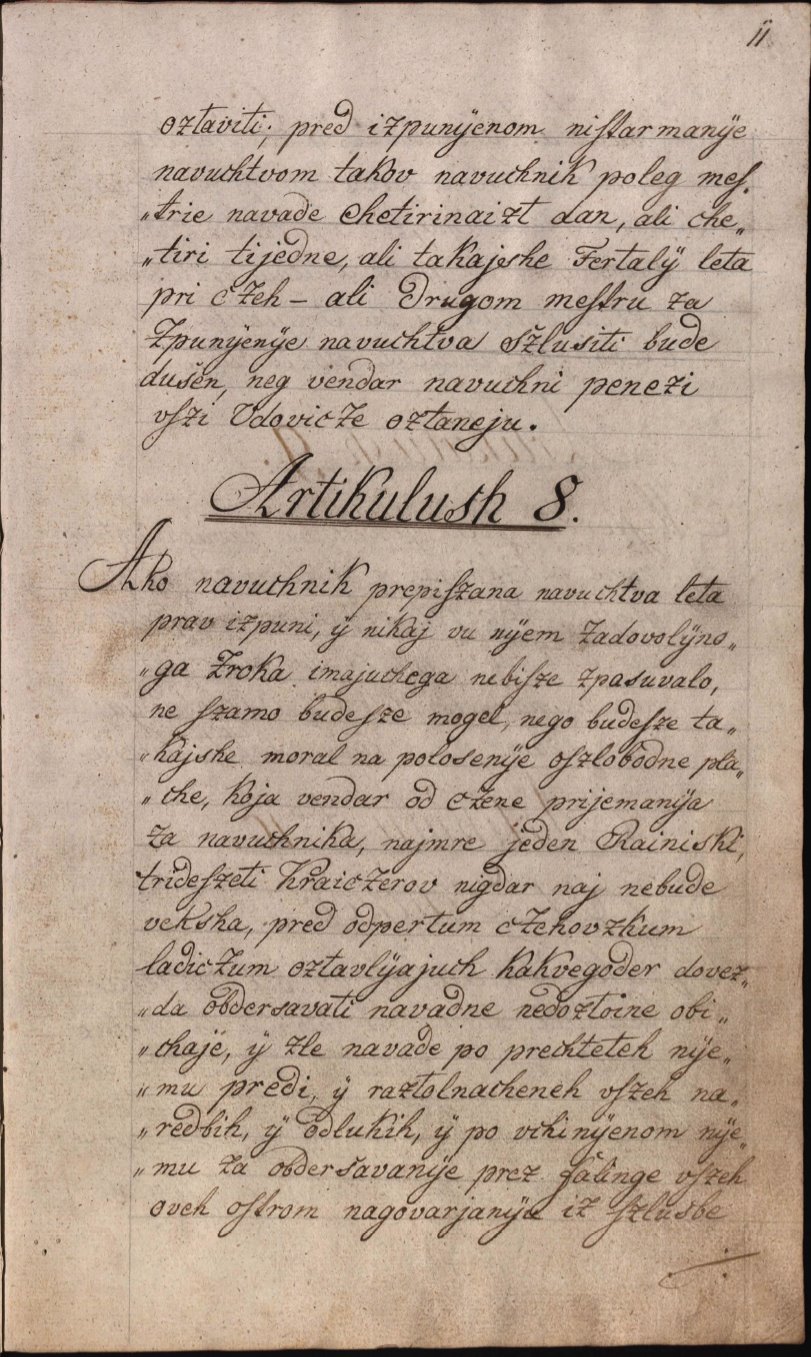 11
oztaviti; pred izpunyenom nistarmanye
navuchtvom takov navuchnik poleg mes„
„trie navade chetirinaizt dan, ali che„
„tiri tijedne, ali takajshe Fertalÿ leta
pri czeh – ali drugom mestru za
zpunyenye navuchtva szlusiti bude
dušen, neg vendar navuchni penezi
vszi Udovicze oztaneju.
Artikulush 8.
Ako navuchnik prepiszana navuchtva leta
prav izpuni, ÿ nikaj vu nyem zadovolyno„
„ga zroka imajuchega nebisze zpasuvalo,
ne szamo budesze mogel, nego budesze ta„
„kajshe moral na polosenye oszlobodne pla„
„che, koja vendar od czene prijemanya
za navuchnika, najmre jeden Rainiski,
trideszeti Kraiczerov nigdar naj nebude
veksha, pred odpertum czehovzkum
ladiczum oztavlyajuch kakvegoder dovez„
„da obdersavati navadne nedoztoine obi„
„chaje, ÿ zle navade po prechteteh nye„
„mu predi, ÿ raztolnacheneh vszeh na„
„redbih, ÿ odlukih, ÿ po vchinyenom nye„
„mu za obdersavanye prez falinge vszeh
oveh ostrom nagovarjanyu iz szlusbe